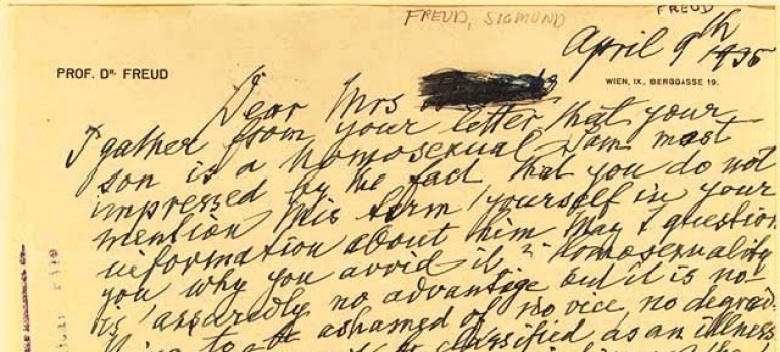 FREUD, SIGMUND
FREUD
April 9th 1935
PROF. DR. FREUD
WIEN, IX., BERGGASSE 19.
Dear Mrs
I gather from your letter that your
son is a homosexual. I am most
impressed by the fact that you do not
mention this term yourself in your
information about him. May I question
you why you avoid it? Homosexuality
is assuredly no advantage but it is no-
thing to be ashamed of, no vice, no degrad
classified as an illness